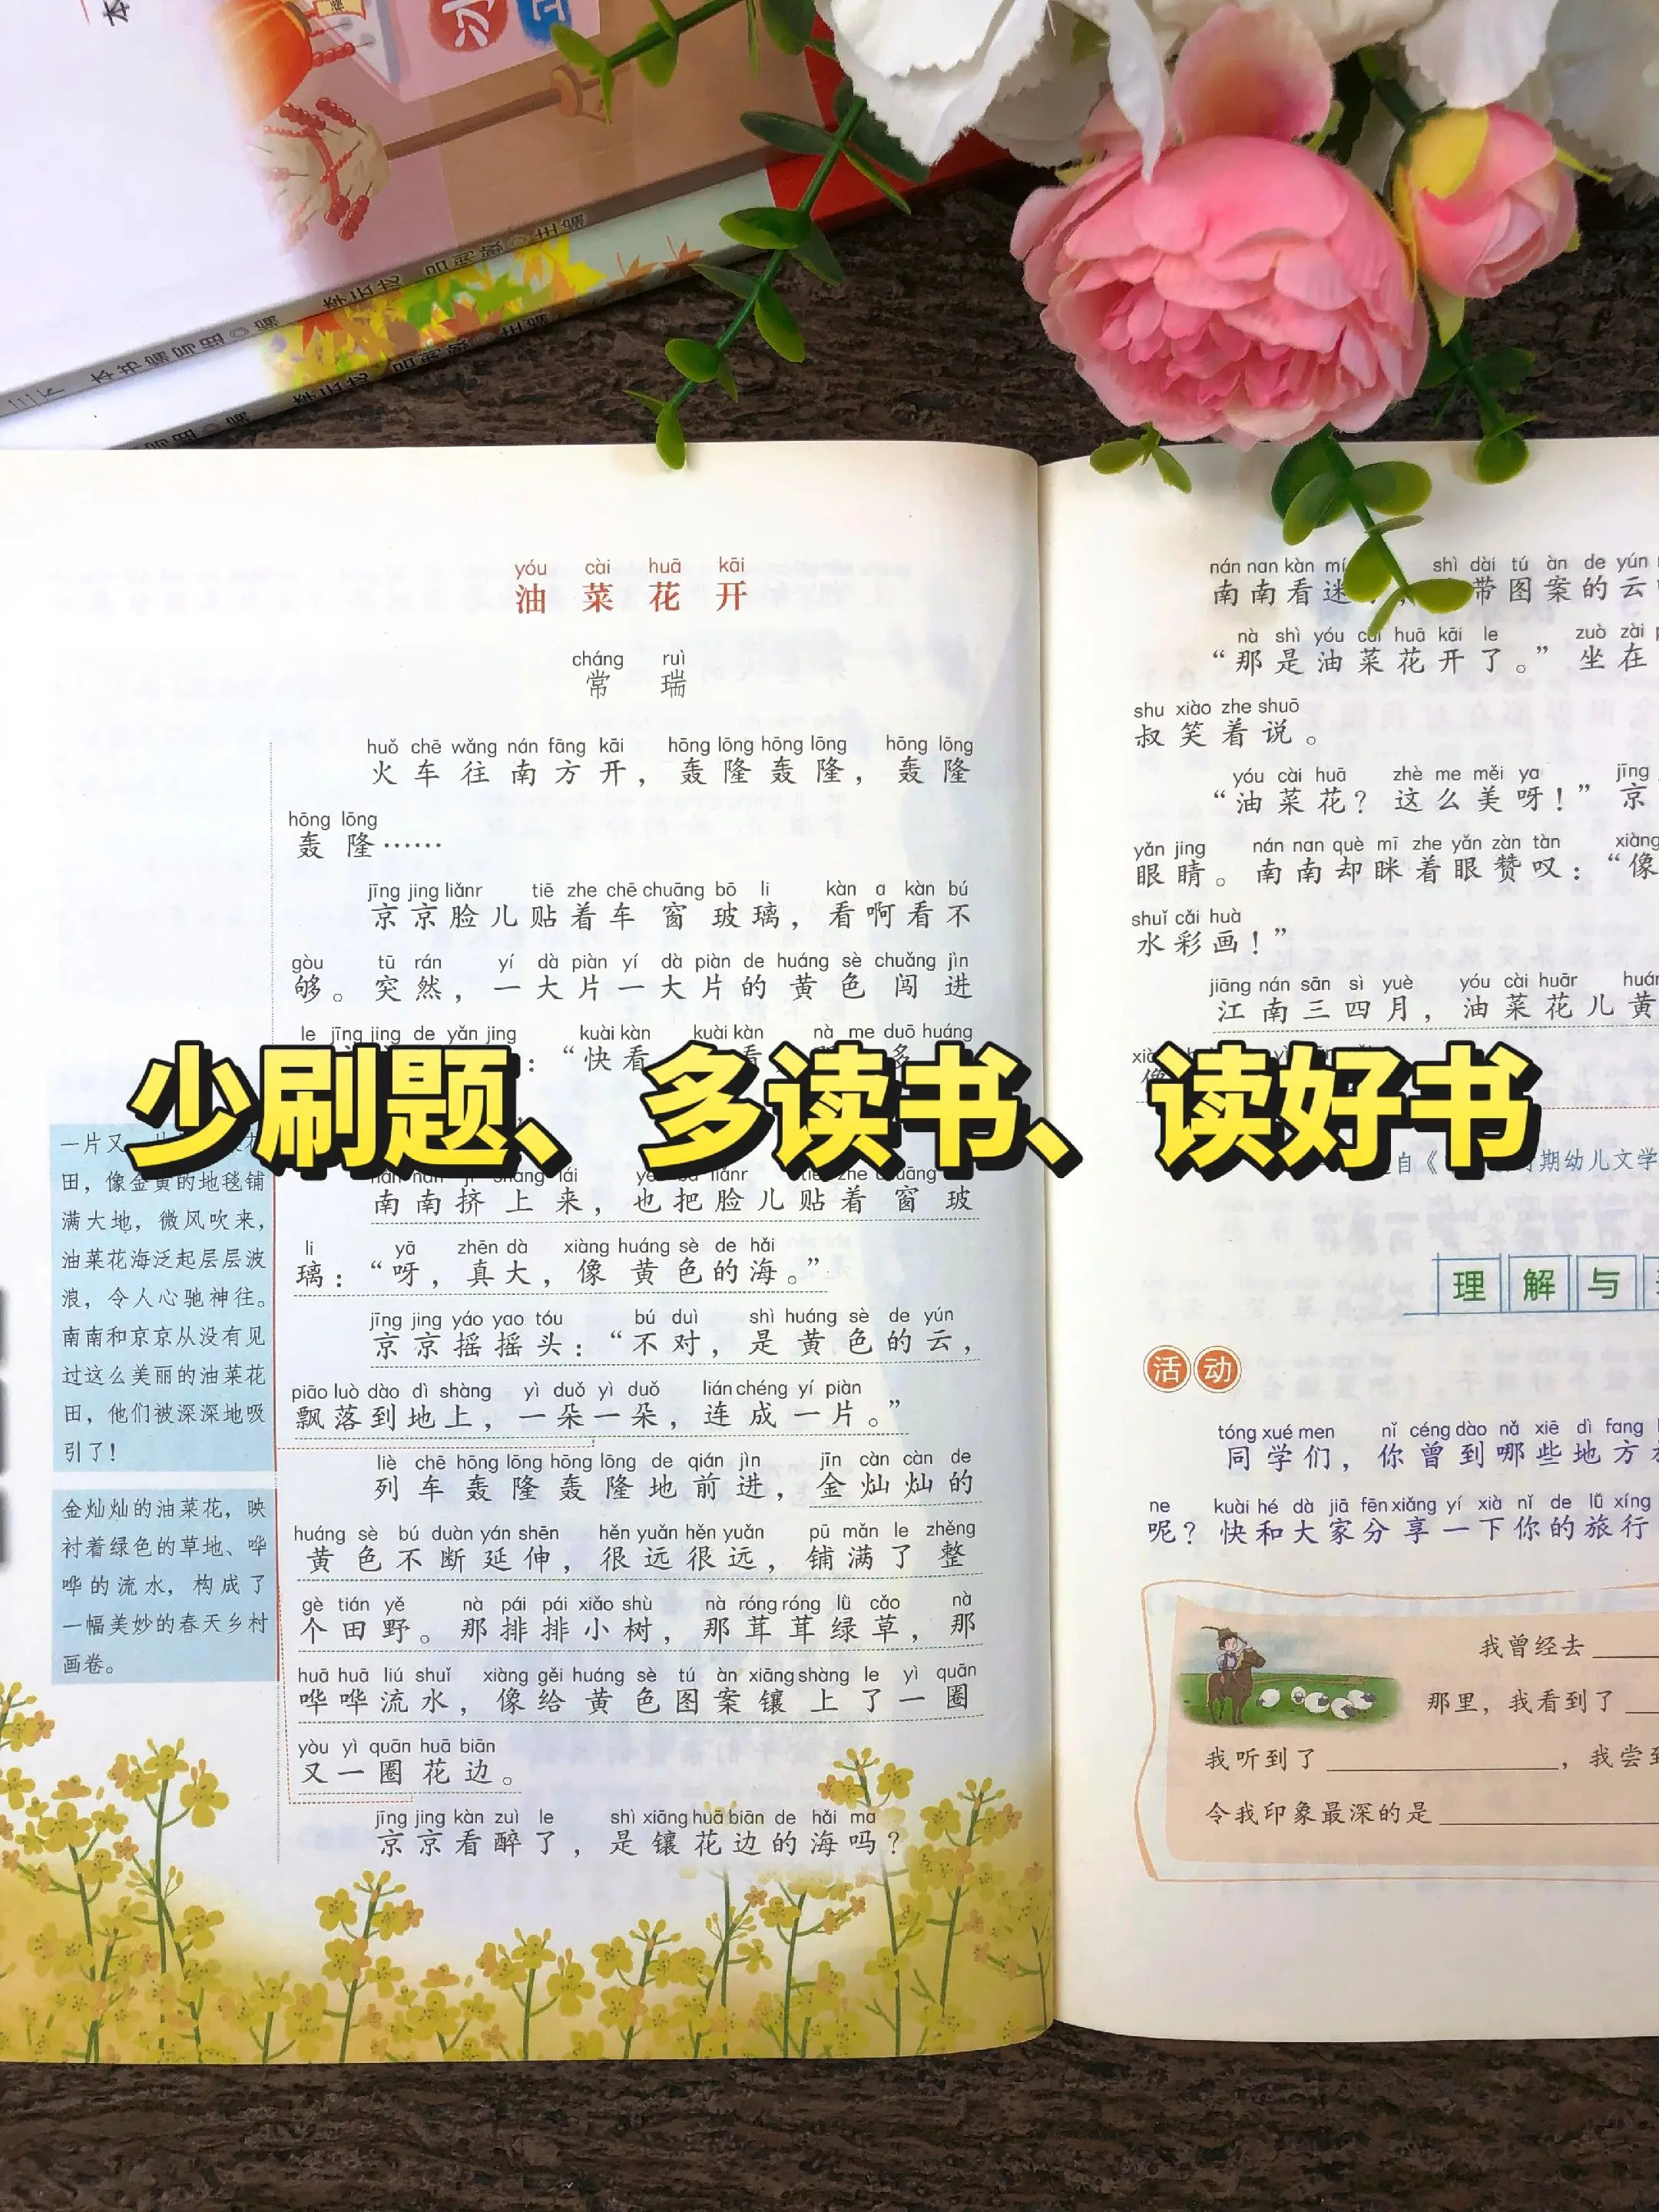 少刷题、多读书、读好书
yóu cài huā kāi
油菜花开
cháng ruì
常瑞
huǒ chē wǎng nán fāng kāi hōng lōng hōng lōng hōng lōng
火车往南方开，轰隆轰隆，轰隆
hōng lōng
轰隆……
jīng jing liǎnr tiē zhe chē chuāng bō li kàn a kàn bú
京京脸儿贴着车窗玻璃，看啊看不
gòu tū rán yí dà piàn yí dà piàn de huáng sè chuǎng jìn
够。突然，一大片一大片的黄色闯进
le jīng jing de yǎn jing kuài kàn kuài kàn nà me duō huáng
：“快看
nán nan jǐ shàng lái yě bǎ liǎnr tiē zhe chuāng
南南挤上来，也把脸儿贴着窗玻
li yā zhēn dà xiàng huáng sè de hǎi
璃：“呀，真大，像黄色的海。”
jīng jing yáo yao tóu bú duì shì huáng sè de yún
京京摇摇头：“不对，是黄色的云，
piāo luò dào dì shàng yì duǒ yì duǒ lián chéng yí piàn
飘落到地上，一朵一朵，连成一片。”
liè chē hōng lōng hōng lōng de qián jìn jīn càn càn de
列车轰隆轰隆地前进，金灿灿的
huáng sè bú duàn yán shēn hěn yuǎn hěn yuǎn pū mǎn le zhěng
黄色不断延伸，很远很远，铺满了整
gè tián yě nà pái pái xiǎo shù nà róng róng lǜ cǎo nà
个田野。那排排小树，那茸茸绿草，那
huā huā liú shuǐ xiàng gěi huáng sè tú àn xiāng shàng le yì quān
哗哗流水，像给黄色图案镶上了一圈
yòu yì quān huā biān
又一圈花边。
jīng jing kàn zuì le shì xiāng huā biān de hǎi ma
京京看醉了，是镶花边的海吗？
一片又
田，像金黄的地毯铺
满大地，微风吹来，
油菜花海泛起层层波
浪，令人心驰神往。
南南和京京从没有见
过这么美丽的油菜花
田，他们被深深地吸
引了！
金灿灿的油菜花，映
衬着绿色的草地、哗
哗的流水，构成了
一幅美妙的春天乡村
画卷。
nán nan kàn mí shì dài tú àn de yún
南南看迷 带图案的云
nà shì yóu cài huā kāi le zuò zài
“那是油菜花开了。”坐在
shu xiào zhe shuō
叔笑着说。
yóu cài huā zhè me měi ya jīng
“油菜花？这么美呀！”京
yǎn jing nán nan què mī zhe yǎn zàn tàn xiàng
眼睛。南南却眯着眼赞叹：“像
shuǐ cǎi huà
水彩画！”
jiāng nán sān sì yuè yóu cài huār
江南三四月，油菜花儿黄
期幼儿文学
理解与
活动
tóng xué men nǐ céng dào nǎ xiē dì fang
同学们，你曾到哪些地方
ne kuài hé dà jiā fēn xiǎng yí xià nǐ de lǚ xíng
呢？快和大家分享一下你的旅行
我曾经去
那里，我看到了
我听到了，我尝到
令我印象最深的是